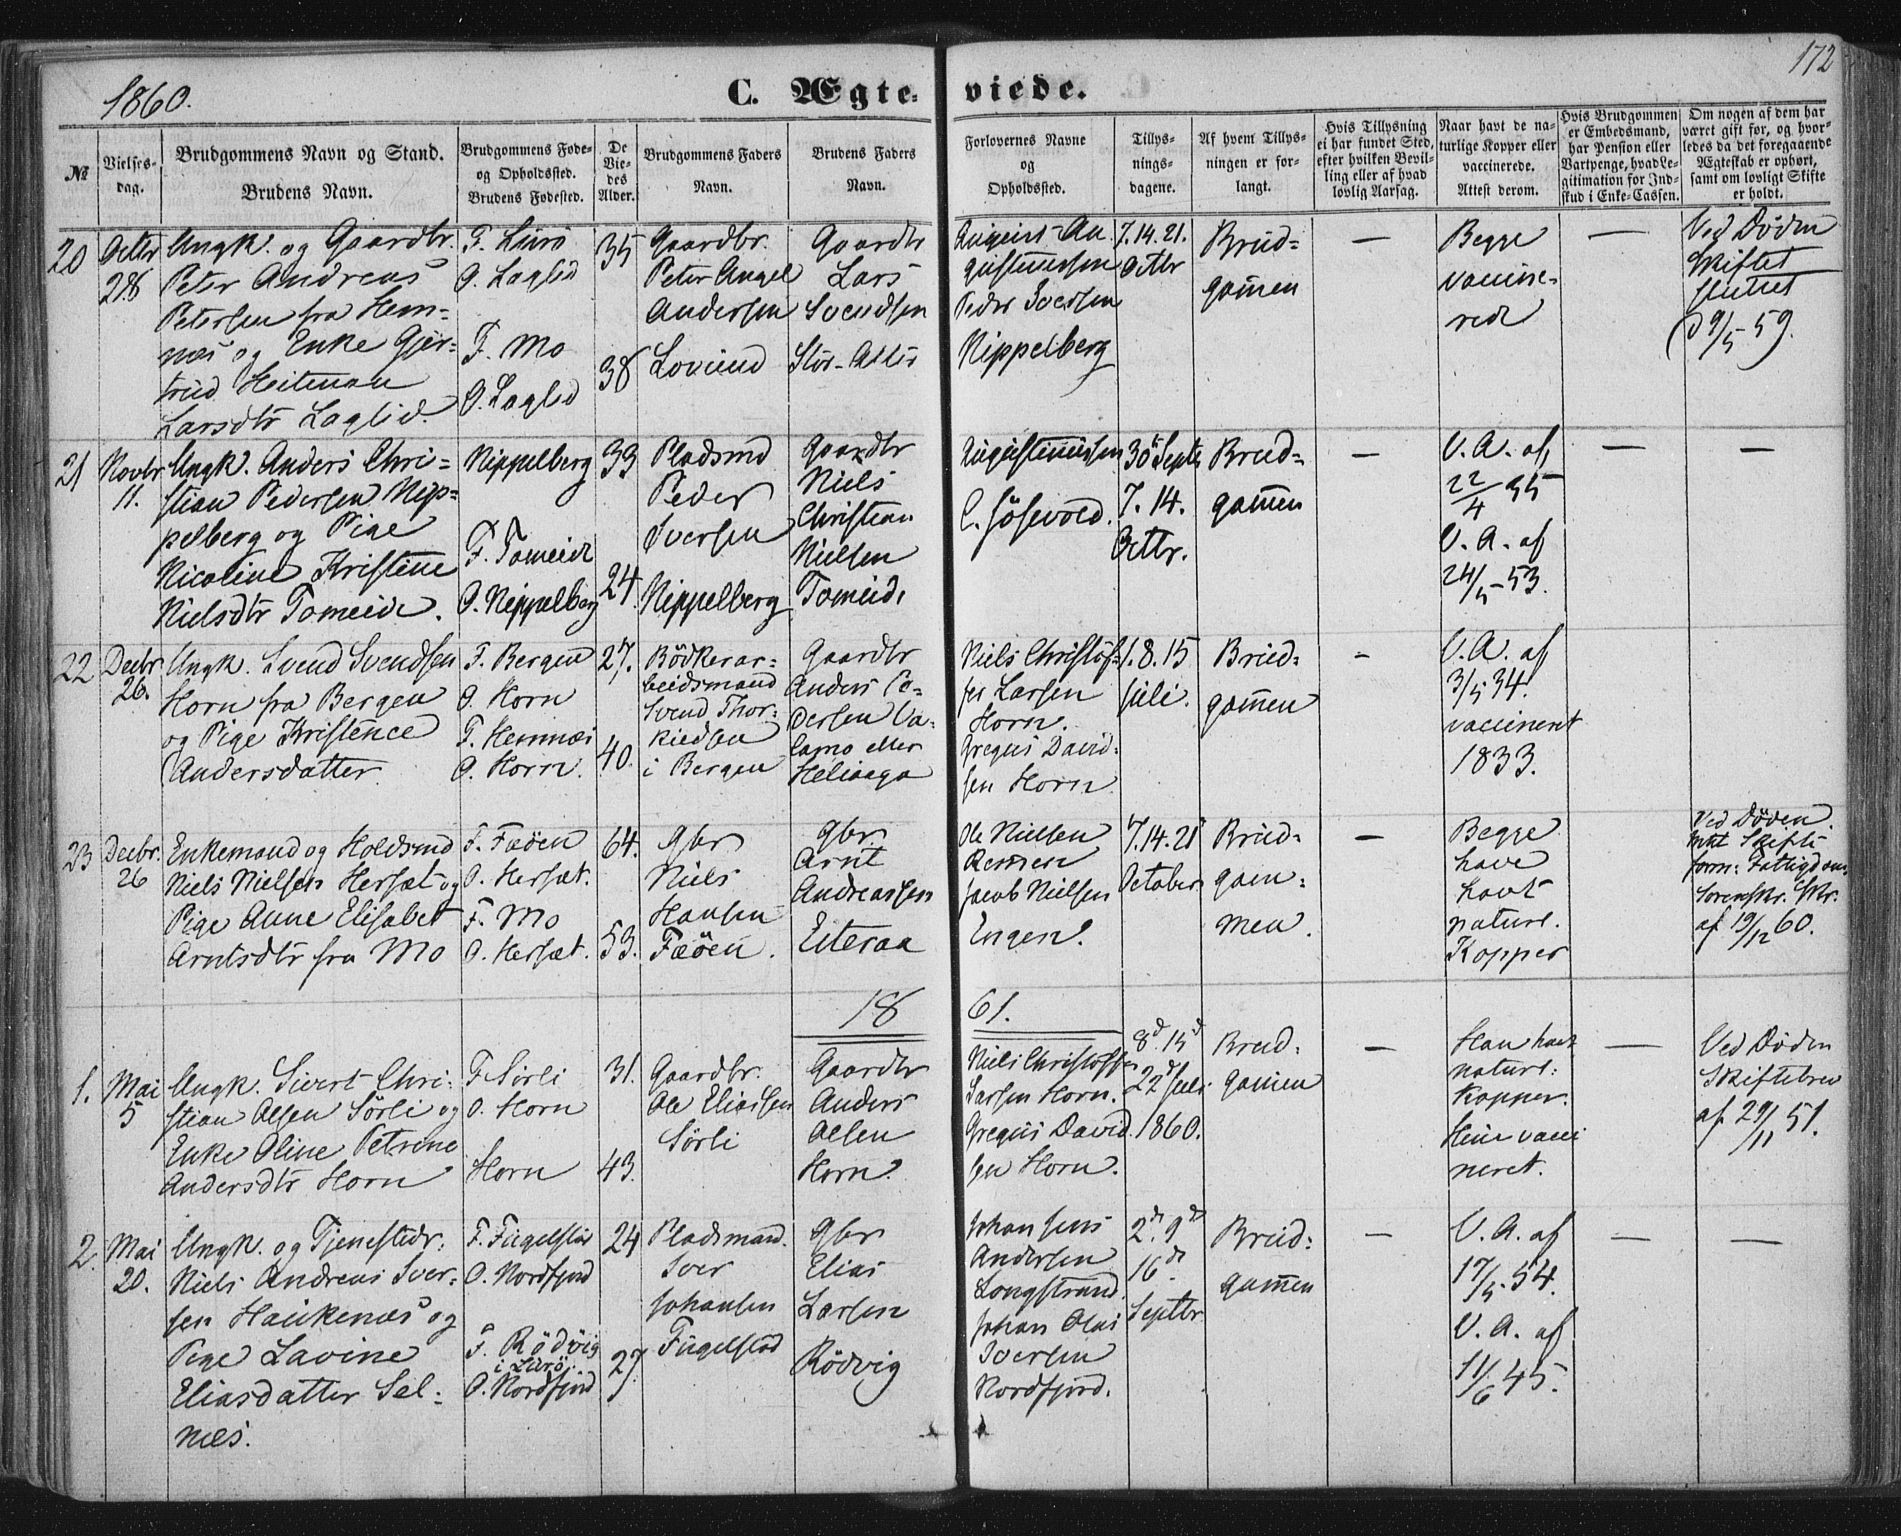 1860.
C. Ægte-
viede.
172
№
Vielses-
dag.
Brudgommens Navn og Stand.
Brudens Navn.
Brudgommens Føde-
og Opholdssted.
Brudens Fødested.
De
Vie-
des
Alder.
Brudgommens Faders
Navn.
Brudens Faders
Navn.
Forlovernes Navne
og
Opholdssted.
Tillys-
nings-
dagene.
Af hvem Tillys-
ningen er for-
langt.
Hvis Tillysning
ei har fundet Sted,
efter hvilken Bevil-
ling eller af hvad
lovlig Aarsag.
Naar havt de na-
turlige Kopper eller
vaccinerede.
Attest derom.
Hvis Brudgommen
er Embedsmand,
har Pension eller
Vartpenge, hvad Le-
gitimation for Ind-
skud i Enke-Cassen.
Om nogen af dem har
været gift før, og hvor-
ledes da det foregaaende
Ægteskab er ophørt,
samt om lovligt Skifte
er holdt.
20
Octbr
28
Ungk. og Gaardbr.
Peter Andreas
Petersen fra Hem-
næs og Enke Gjer-
trud Heitman
Larsdtr Laglid.
F. Lurö
O. Laglid
F. Mo
O. Laglid
35
38
Gaardbr.
Peter Angel
Andersen
Lovund
Gaardbr
Lars
Svendsen
Stor-Alter
August Au-
gustinussen
Peder Iversen
Nippelberg
7. 14. 21.
Octbr
Brud-
gom̅en
—
Begge
vaccine-
rede
—
Ved Døden
Skiftet
sluttet
d 9/5 59.
21
Novbr
11.
Ungk. Anders Chri-
stian Pedersen Nip-
pelberg og Pige
Nicoline Kristine
Nielsdtr Tomeide.
Nippelberg
F. Tomeide
O. Nippelberg
33
24.
Pladsmd
Peder
Iversen
Nippelberg
Gaardbr
Niels
Christian
Nielsen
Tomeide
Augustinussen
C. Jösevold.
30te Septr
7. 14.
Octbr.
Brud-
gom̅en
—
V. A. af
22/4 35
V. A. af
24/5 53.
—
—
22
Decbr
26.
Ungk. Svend Svendsen
Horn fra Bergen
og Pige Kristence
Andersdatter
F. Bergen
O. Horn
F. Hemnæs
O. Horn.
27.
40.
Bödkerar-
beidsmand
Svend Thor-
kildsen
i Bergen
Gaardbr
Anders Pe-
dersen Va-
lamo eller
Heliaaga
Niels Christof-
fer Larsen
Horn.
Gregus David-
sen Horn
1. 8. 15
Juli.
Brud-
gom̅en
-
V. A. af
3/5 34.
vaccineret
1833.
23
Decbr.
26
Enkemand og Holdsmd
Niels Nielsen Hersæt og
Pige Anne Elisabet
Arntsdtr fra Mo
F. Fæöen
O. Hersæt.
F. Mo
O. Hersæt.
64.
53.
Gbr
Niels
Hansen
Fæöen.
Gbr
Arnt
Andreassen
Eiteraa
Ole Nielsen
Jacob Nielsen
Engen.
7. 14. 21
October
Brud-
gom-
men.
—
Begge
have
havt
naturl.
Kopper
Ved Døden.
Intet Skifte
form: Fattigdom.
Sorenskr. Skr.
af 19/12 60.
18
61.
1.
Mai
5
Ungk. Sivert Chri-
stian Olsen Sörli og
Enke Oline Petrine
Andersdtr Horn
F. Sörli
O. Horn
Horn
31.
43.
Gaardbr.
Ole Eliassen
Sörli
Gaardbr
Anders
Olsen
Horn.
Niels Christoffer
Larsen Horn.
Gregus David-
sen Horn.
8d. 15d
22d Juli
1860.
Brud-
gom̅en
—
Han havt
naturl:
Kopper.
Hun vacci
neret.
—
Ved Døden
Skiftebrev
af 29/11 51.
2.
Mai
20.
Ungk. og Tjenestedr.
Niels Andreas Iver-
sen Haukenæs og
Pige Lavine
Eliasdatter Sel-
næs.
F. Fugelstad
O. Nordfjord
F. Rödvig
i Lurö.
O. Nordfjord
24
27.
Pladsmand.
Iver
Johansen
Fugelstad
Gbr
Elias
Larsen
Rödvig
Johan Jens
Andersen
Langstrand.
Johan Olai
Iversen
Nordfjord.
2de 9de
16de
Septbr
Brud-
gom̅en
—
V. A. af
17/5 54.
V. A. af
11/6 45.
—
—